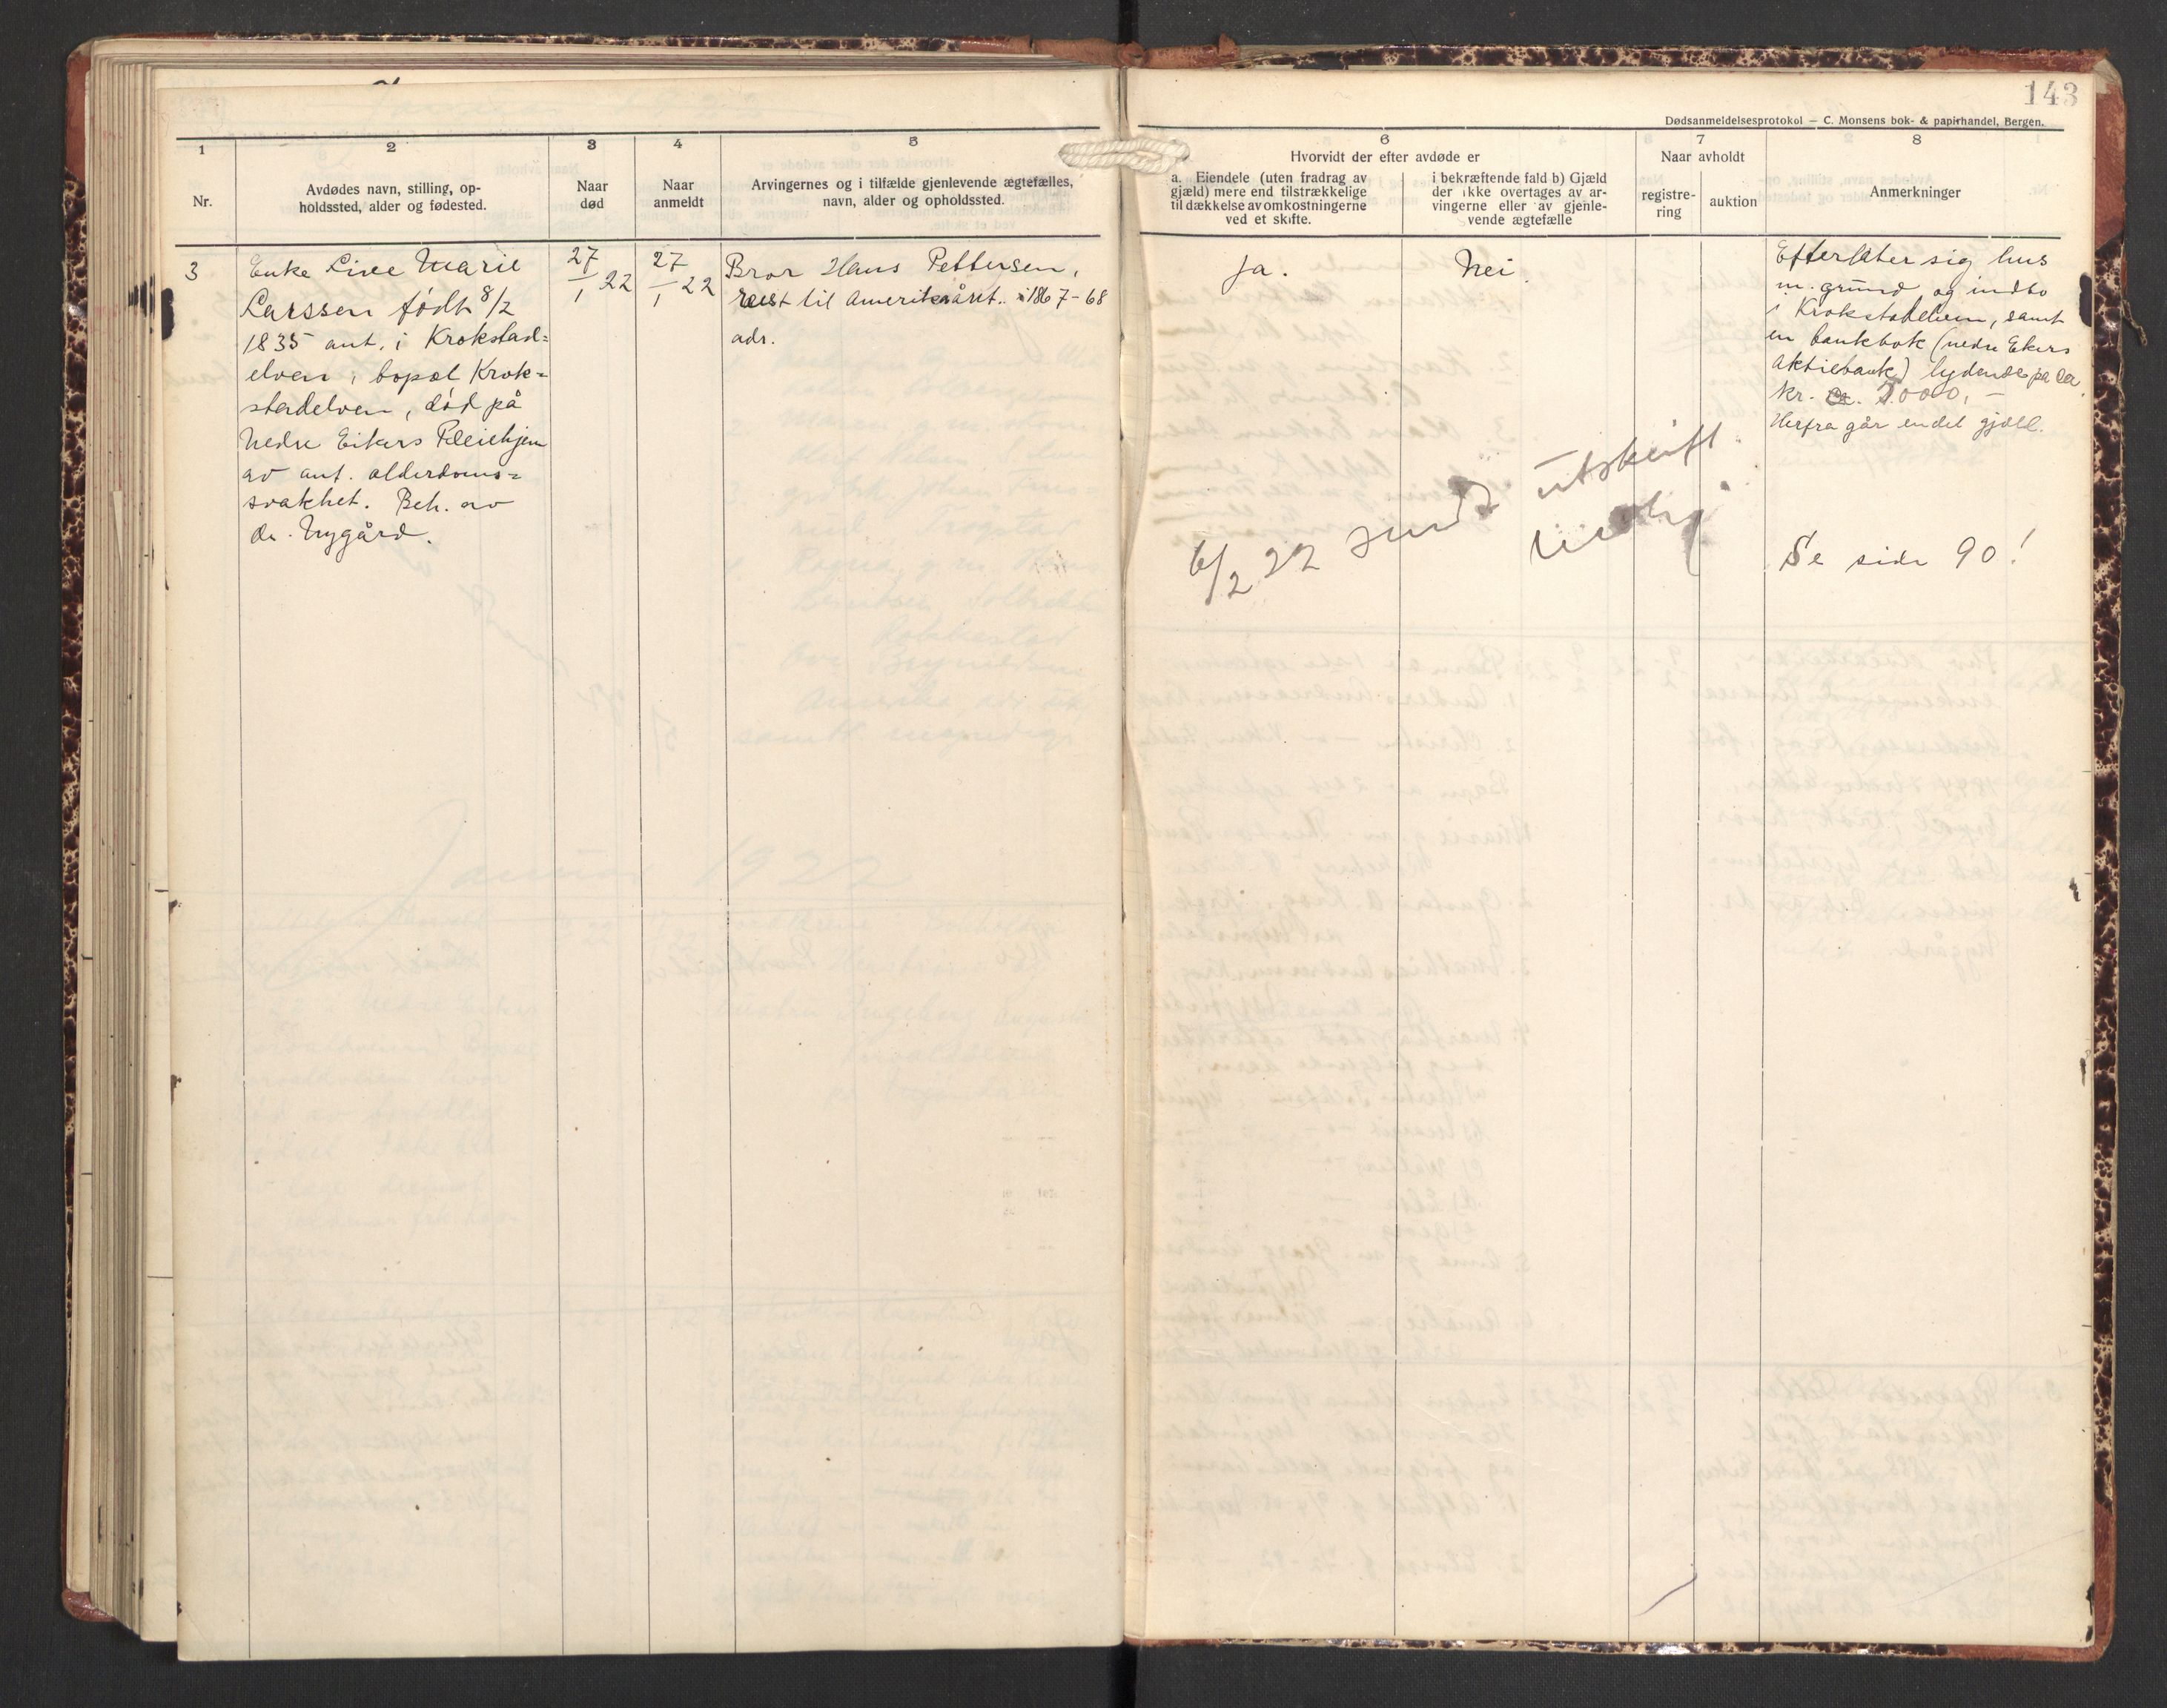 143
Dødsanmeldelsesprotokol — C. Monsens bok- & papirhandel, Bergen.
1
Nr.
2
Avdødes navn, stilling, op-
holdssted, alder og fødested.
3
Naar
død
4
Naar
anmeldt
5
Arvingernes og i tilfælde gjenlevende ægtefælles,
navn, alder og opholdssted.
6
Hvorvidt der efter avdøde er
a. Eiendele (uten fradrag av
gjæld) mere end tilstrækkelige
til dækkelse av omkostningerne
ved et skifte.
i bekræftende fald b) Gjæld
der ikke overtages av ar-
vingerne eller av gjenle-
vende ægtefælle
7
Naar avholdt
registre-
ring
auktion
8
Anmerkninger
3
Enke Live Marie
Larssen født 8/2
1835 ant. i Krokstad=
elven, bopæl Krok=
stadelven, død på
Nedre Eikers Pleiehjem
av ant. alderdoms=
svakhet. Beh. av
dr. Nygård.
27/1 22
27/1 22
Bror Hans Pettersen,
reist til Amerika ånt. i 1867-68
adr.
Ja.
Nei.
6/2 22 sendt utskrift
Efterlater sig hus
m. grund og indbo
i Krokstadelven, samt
en bankbok (nedre Ekers
Aktiebank) lydende på ca
kr. 7.000,-
Herfra går endel gjæld.
Se side 90!